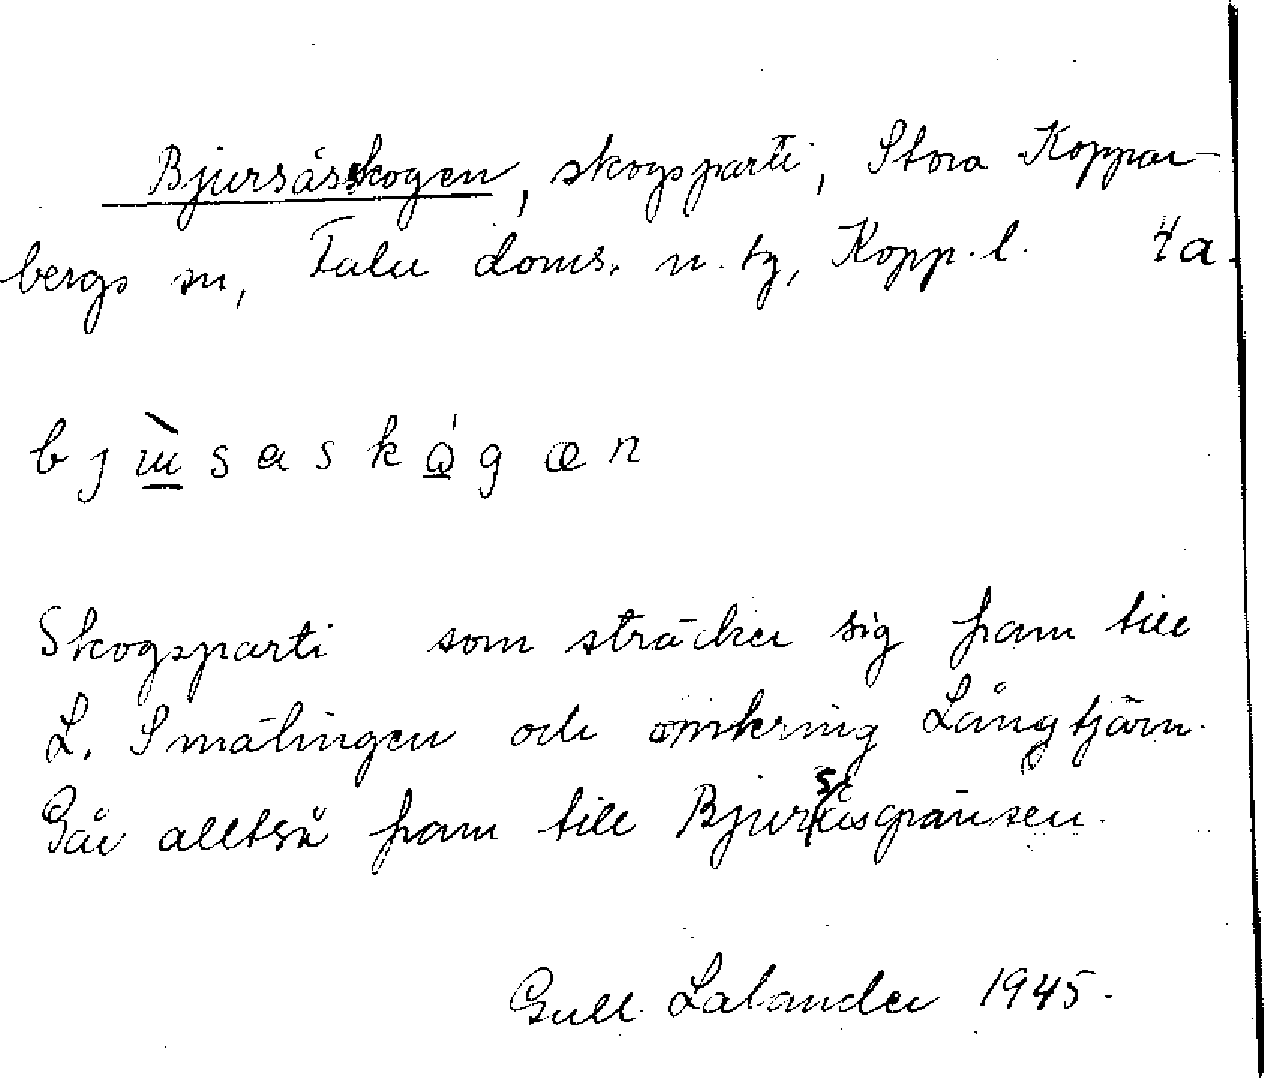 Bjursåsskogen, skogsparti, Stora Koppar-
bergs sn, Falu doms. n. tg, Kopp. l. 4a.
Skogsparti som sträcker sig fram till
L. Smälingen och omkring Långtjärn.
Går alltså fram till Bjursåsgränsen.
Gull Lalander 1945.